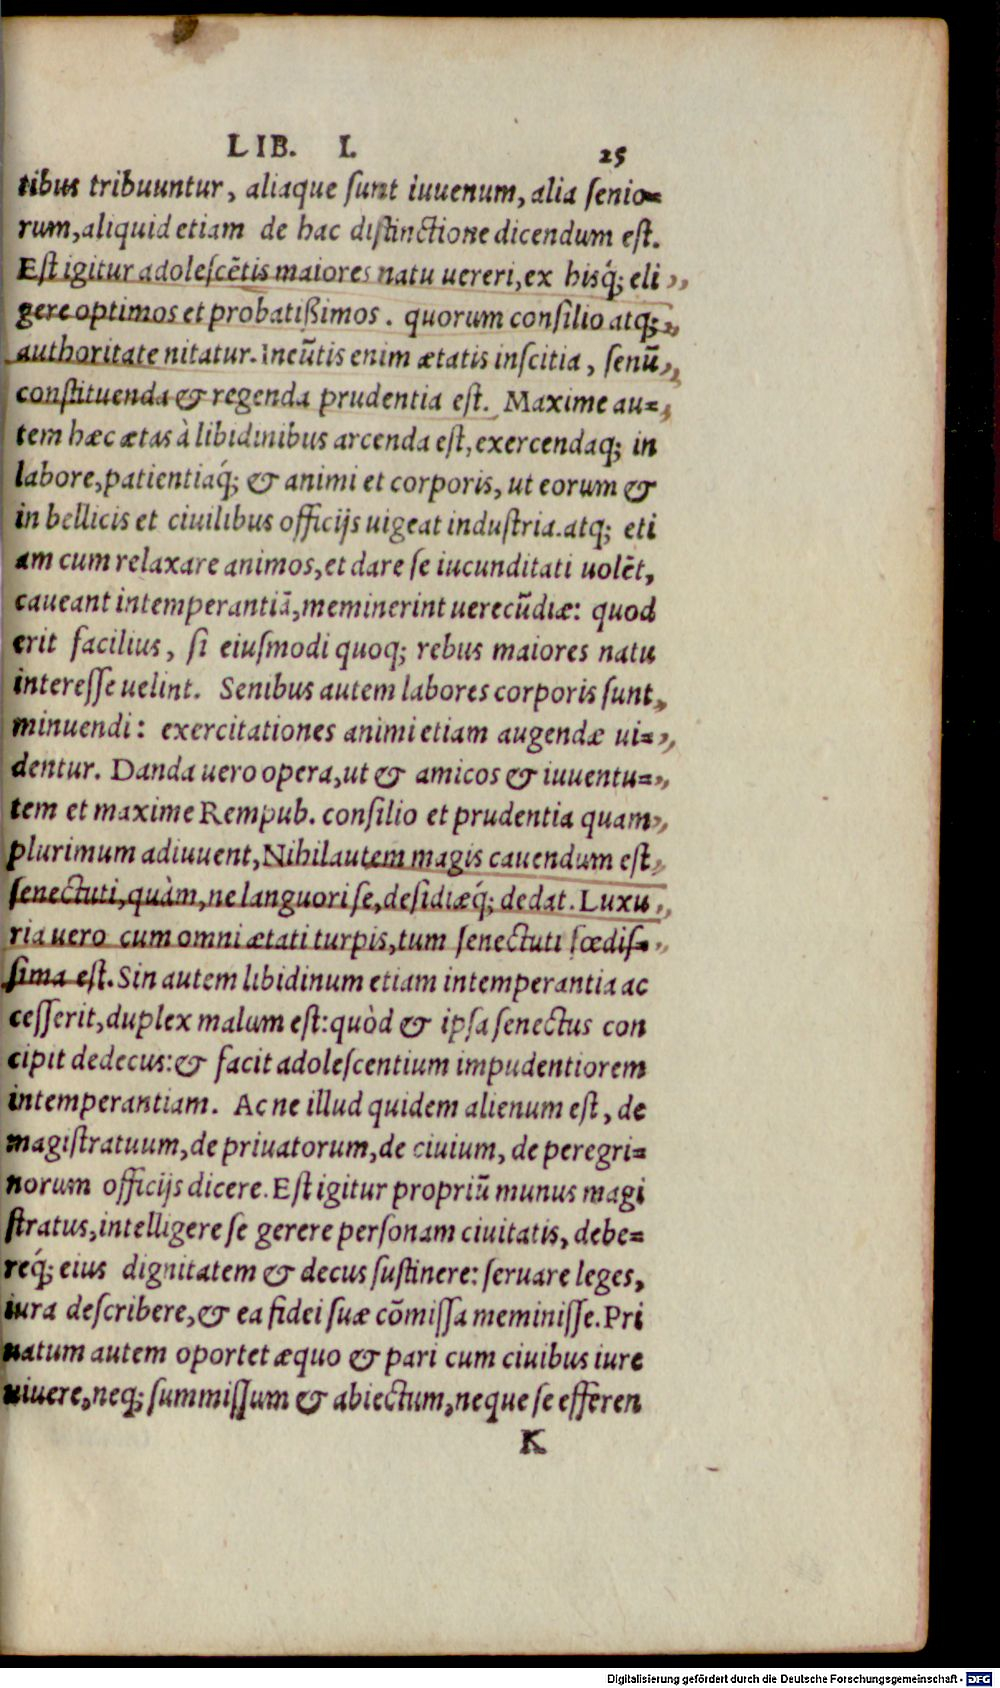 LIB. I. 25
tibus tribuuntur, aliaque ſunt iuuenum, alia ſenio=
rum, aliquid etiam de hac diſtinctione dicendum eſt.
Eſt igitur adoleſcẽtis maiores natu uereri, ex hisq́; eli
gere optimos et probatißimos. quorum conſilio atq;
authoritate nitatur. Ineũtis enim ætatis inſcitia, ſenũ
conſtituenda & regenda prudentia eſt. Maxime au=
tem hæc ætas à libidinibus arcenda eſt, exercendaq; in
labore, patientiaq́; & animi et corporis, ut eorum &
in bellicis et ciuilibus officijs uigeat induſtria. atq; eti
am cum relaxare animos, et dare ſe iucunditati uolẽt,
caueant intemperantiã, meminerint uerecũdiæ: quod
erit facilius, ſi eiuſmodi quoq; rebus maiores natu
intereſſe uelint. Senibus autem labores corporis ſunt
minuendi: exercitationes animi etiam augendæ ui=
dentur. Danda uero opera, ut & amicos & iuuentu=
tem et maxime Rempub. conſilio et prudentia quam
plurimum adiuuent, Nihil autem magis cauendum eſt
ſenectuti, quàm, ne languori ſe, deſidiæq́; dedat. Luxu
ria uero cum omni ætati turpis, tum ſenectuti fœdiſ=
ſima eſt. Sin autem libidinum etiam intemperantia ac
ceſſerit, duplex malum eſt: quòd & ipſa ſenectus con
cipit dedecus: & facit adoleſcentium impudentiorem
intemperantiam. Ac ne illud quidem alienum eſt, de
magiſtratuum, de priuatorum, de ciuium, de peregri=
norum officijs dicere. Eſt igitur propriũ munus magi
ſtratus, intelligere ſe gerere perſonam ciuitatis, debe=
req́; eius dignitatem & decus ſuſtinere: ſeruare leges,
iura deſcribere, & ea fidei ſuæ cõmiſſa meminiſſe. Pri
uatum autem oportet æquo & pari cum ciuibus iure
uiuere, neq; ſummiſſum & abiectum, neque ſe efferen
K
Digitalisierung gefördert durch die Deutsche Forschungsgemeinschaft - DFG